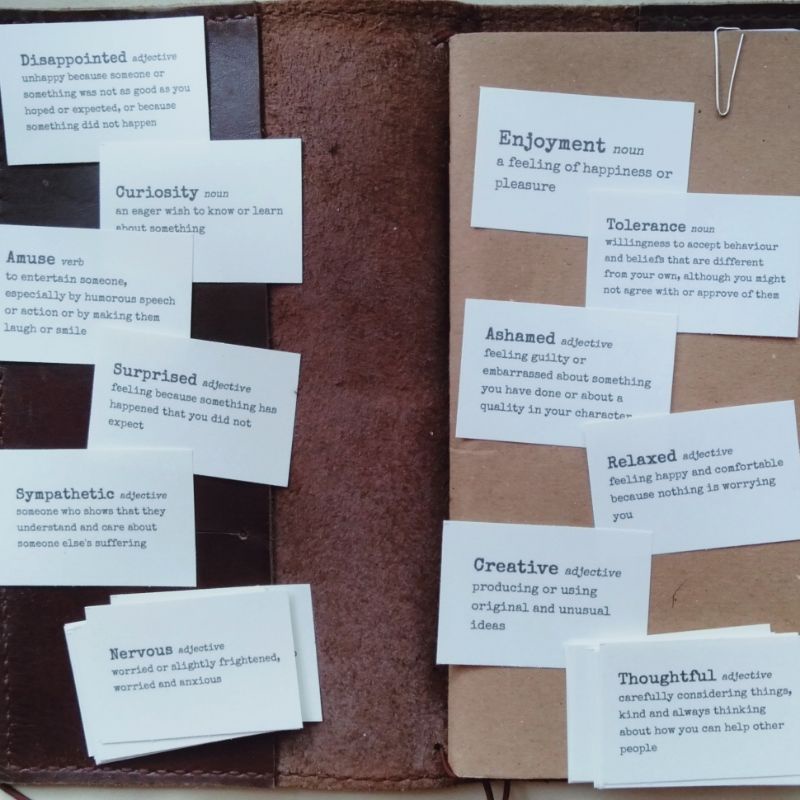 Disappointed adjective
unhappy because someone or
something was not as good as you
hoped or expected, or because
something did not happen
Curiosity noun
an eager wish to know or learn
about something
Amuse verb
to entertain someone,
especially by humorous speech
or action or by making them
laugh or smile
Surprised adjective
feeling because something has
happened that you did not
expect
Sympathetic adjective
someone who shows that they
understand and care about
someone else's suffering
Nervous adjective
worried or slightly frightened,
worried and anxious
Enjoyment noun
a feeling of happiness or
pleasure
Tolerance noun
willingness to accept behaviour
and beliefs that are different
from your own, although you might
not agree with or approve of them
Ashamed adjective
feeling guilty or
embarrassed about something
you have done or about a
quality in your character
Relaxed adjective
feeling happy and comfortable
because nothing is worrying
you
Creative adjective
producing or using
original and unusual
ideas
Thoughtful adjective
carefully considering things,
kind and always thinking
about how you can help other
people